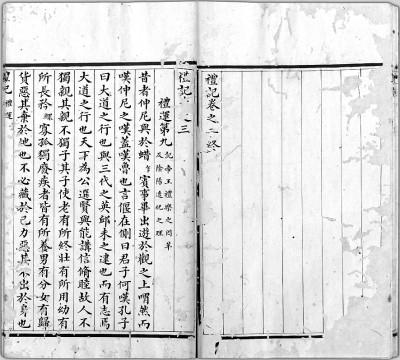 禮記卷之二終
禮記 之三
禮運第九 記帝王禮樂之因革
及陰陽造化之理
昔者仲尼與於蜡 賓事畢出遊於觀之上喟然而
嘆仲尼之嘆蓋嘆魯也言偃在側曰君子何嘆孔子
曰大道之行也與三代之英邱未之逮也而有志焉
大道之行也天下為公選賢與能講信脩睦故人不
獨親其親不獨子其子使老有所終壯有所用幼有
所長矜 寡孤獨廢疾者皆有所養男有分女有歸
貨惡其棄於地也不必藏於己力惡其不出於身也
禮記 禮運